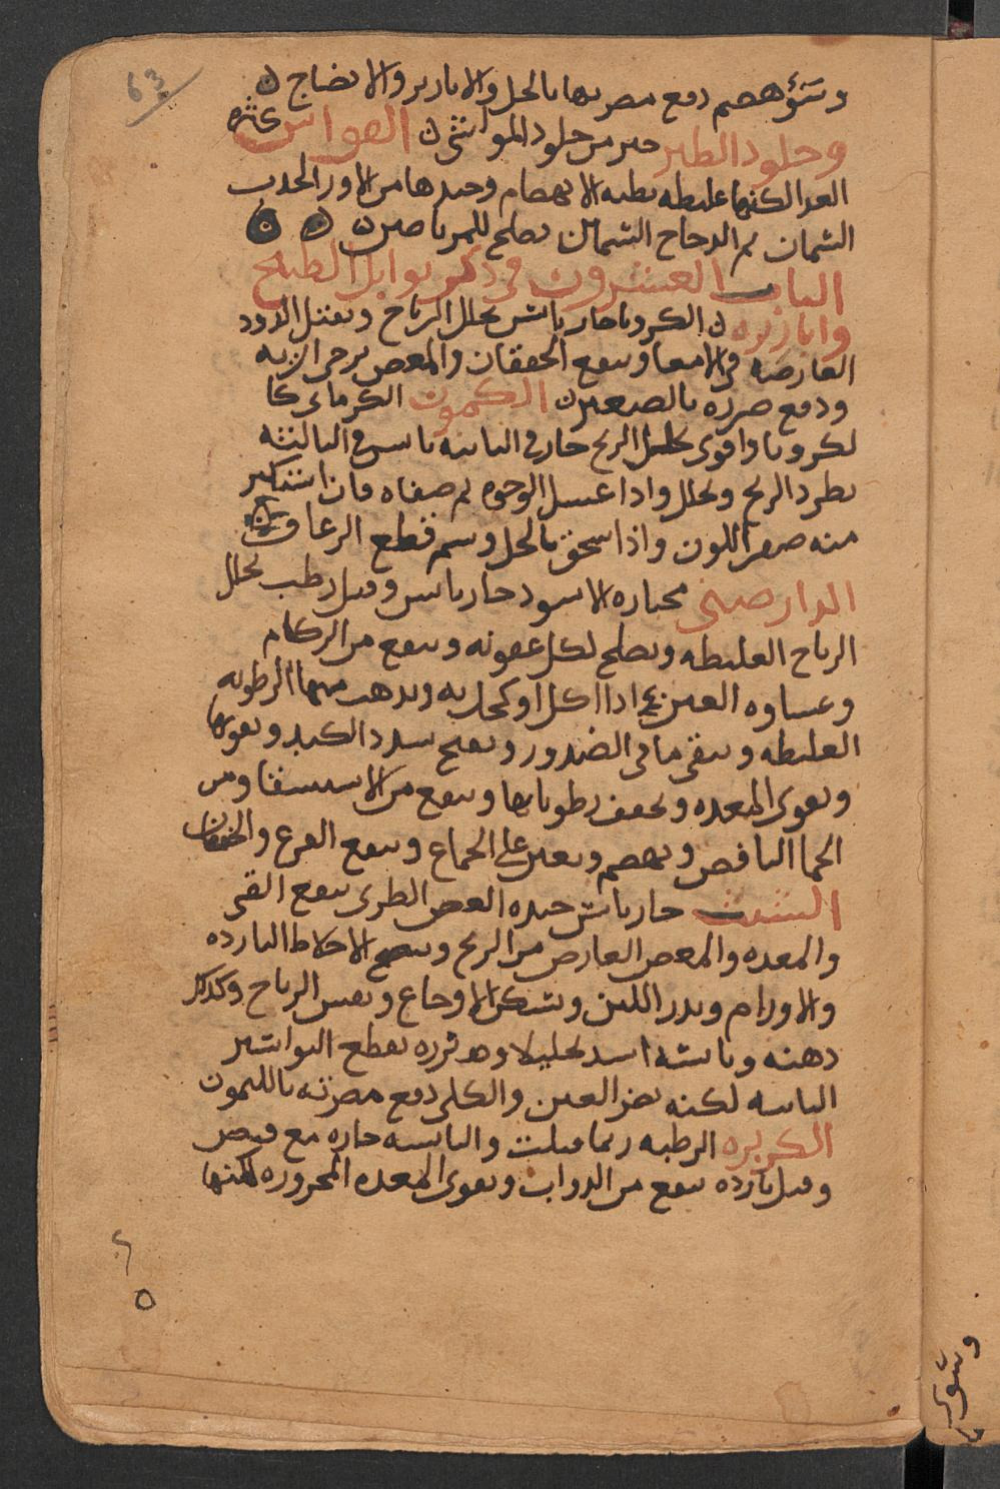 63
وسوء هضم دفع مضرتها بالخل والابازير والانضاج ن
وجلود الطير خير من جلود المواشي ن القوانص كثيرة
الغدا لكنها غليظه بطيه الانهضام وجيدها من الاوز الحدب
السمان ثم الدجاج السمان يصلح للمرتاضين ن ن ن
الباب العشرون في ذكر توابل الطبيخ
وابازيره ن الكرويا حار يابس يحلل الرياح ويقتل الدود
العارضه في الامعا وينفع الخفقان والمغص بزحر الريه
ودفع ضرره بالصعتر ن الكمون الكرماني كا
لكرويا واقوى تحليل الريح حار في الثانيه يابس في الثالثه
يطرد الريح ويحلل واذا غسل الوجوه به صفاه فان استكثر
منه صفر اللون واذا سحق بالخل وشم قطع الرعاف ن
الدار صيني مختاره الاسود حار يابس وقيل رطب يحلل
الرياح الغليظه ويصلح لكل عفونه وينفع من الزكام
وغشاوه العين اذا اكل او كحل به ويذهب منها الرطوبه
الغليظه وينقي ما في الصدور ويفتح سدد الكبد ويقويها
ويقوي المعده ويجفف رطوباتها وينفع من الاستسقا ومن
الحما النافض ويهضم ويعين على الجماع وينفع الفزع والخفقان
الشبث حار يابس جيده الغض الطري ينفع القي
والمعده والمغص العارض من الريح وينضج الاخلاط البارده
والاورام ويدر اللبن ويسكن الاوجاع ويفش الرياح وكذلك
دهنه ويابسه اشد تحليلا وهو قروه يقطع البواسير
النابته لكنه يضر العين والكلى دفع مضرته بالليمون
الكزبره الرطبه ربما قتلت واليابسه حاره مع قبض
وقيل بارده ينفع من الدوار ويقوي المعده المحروره لكنها